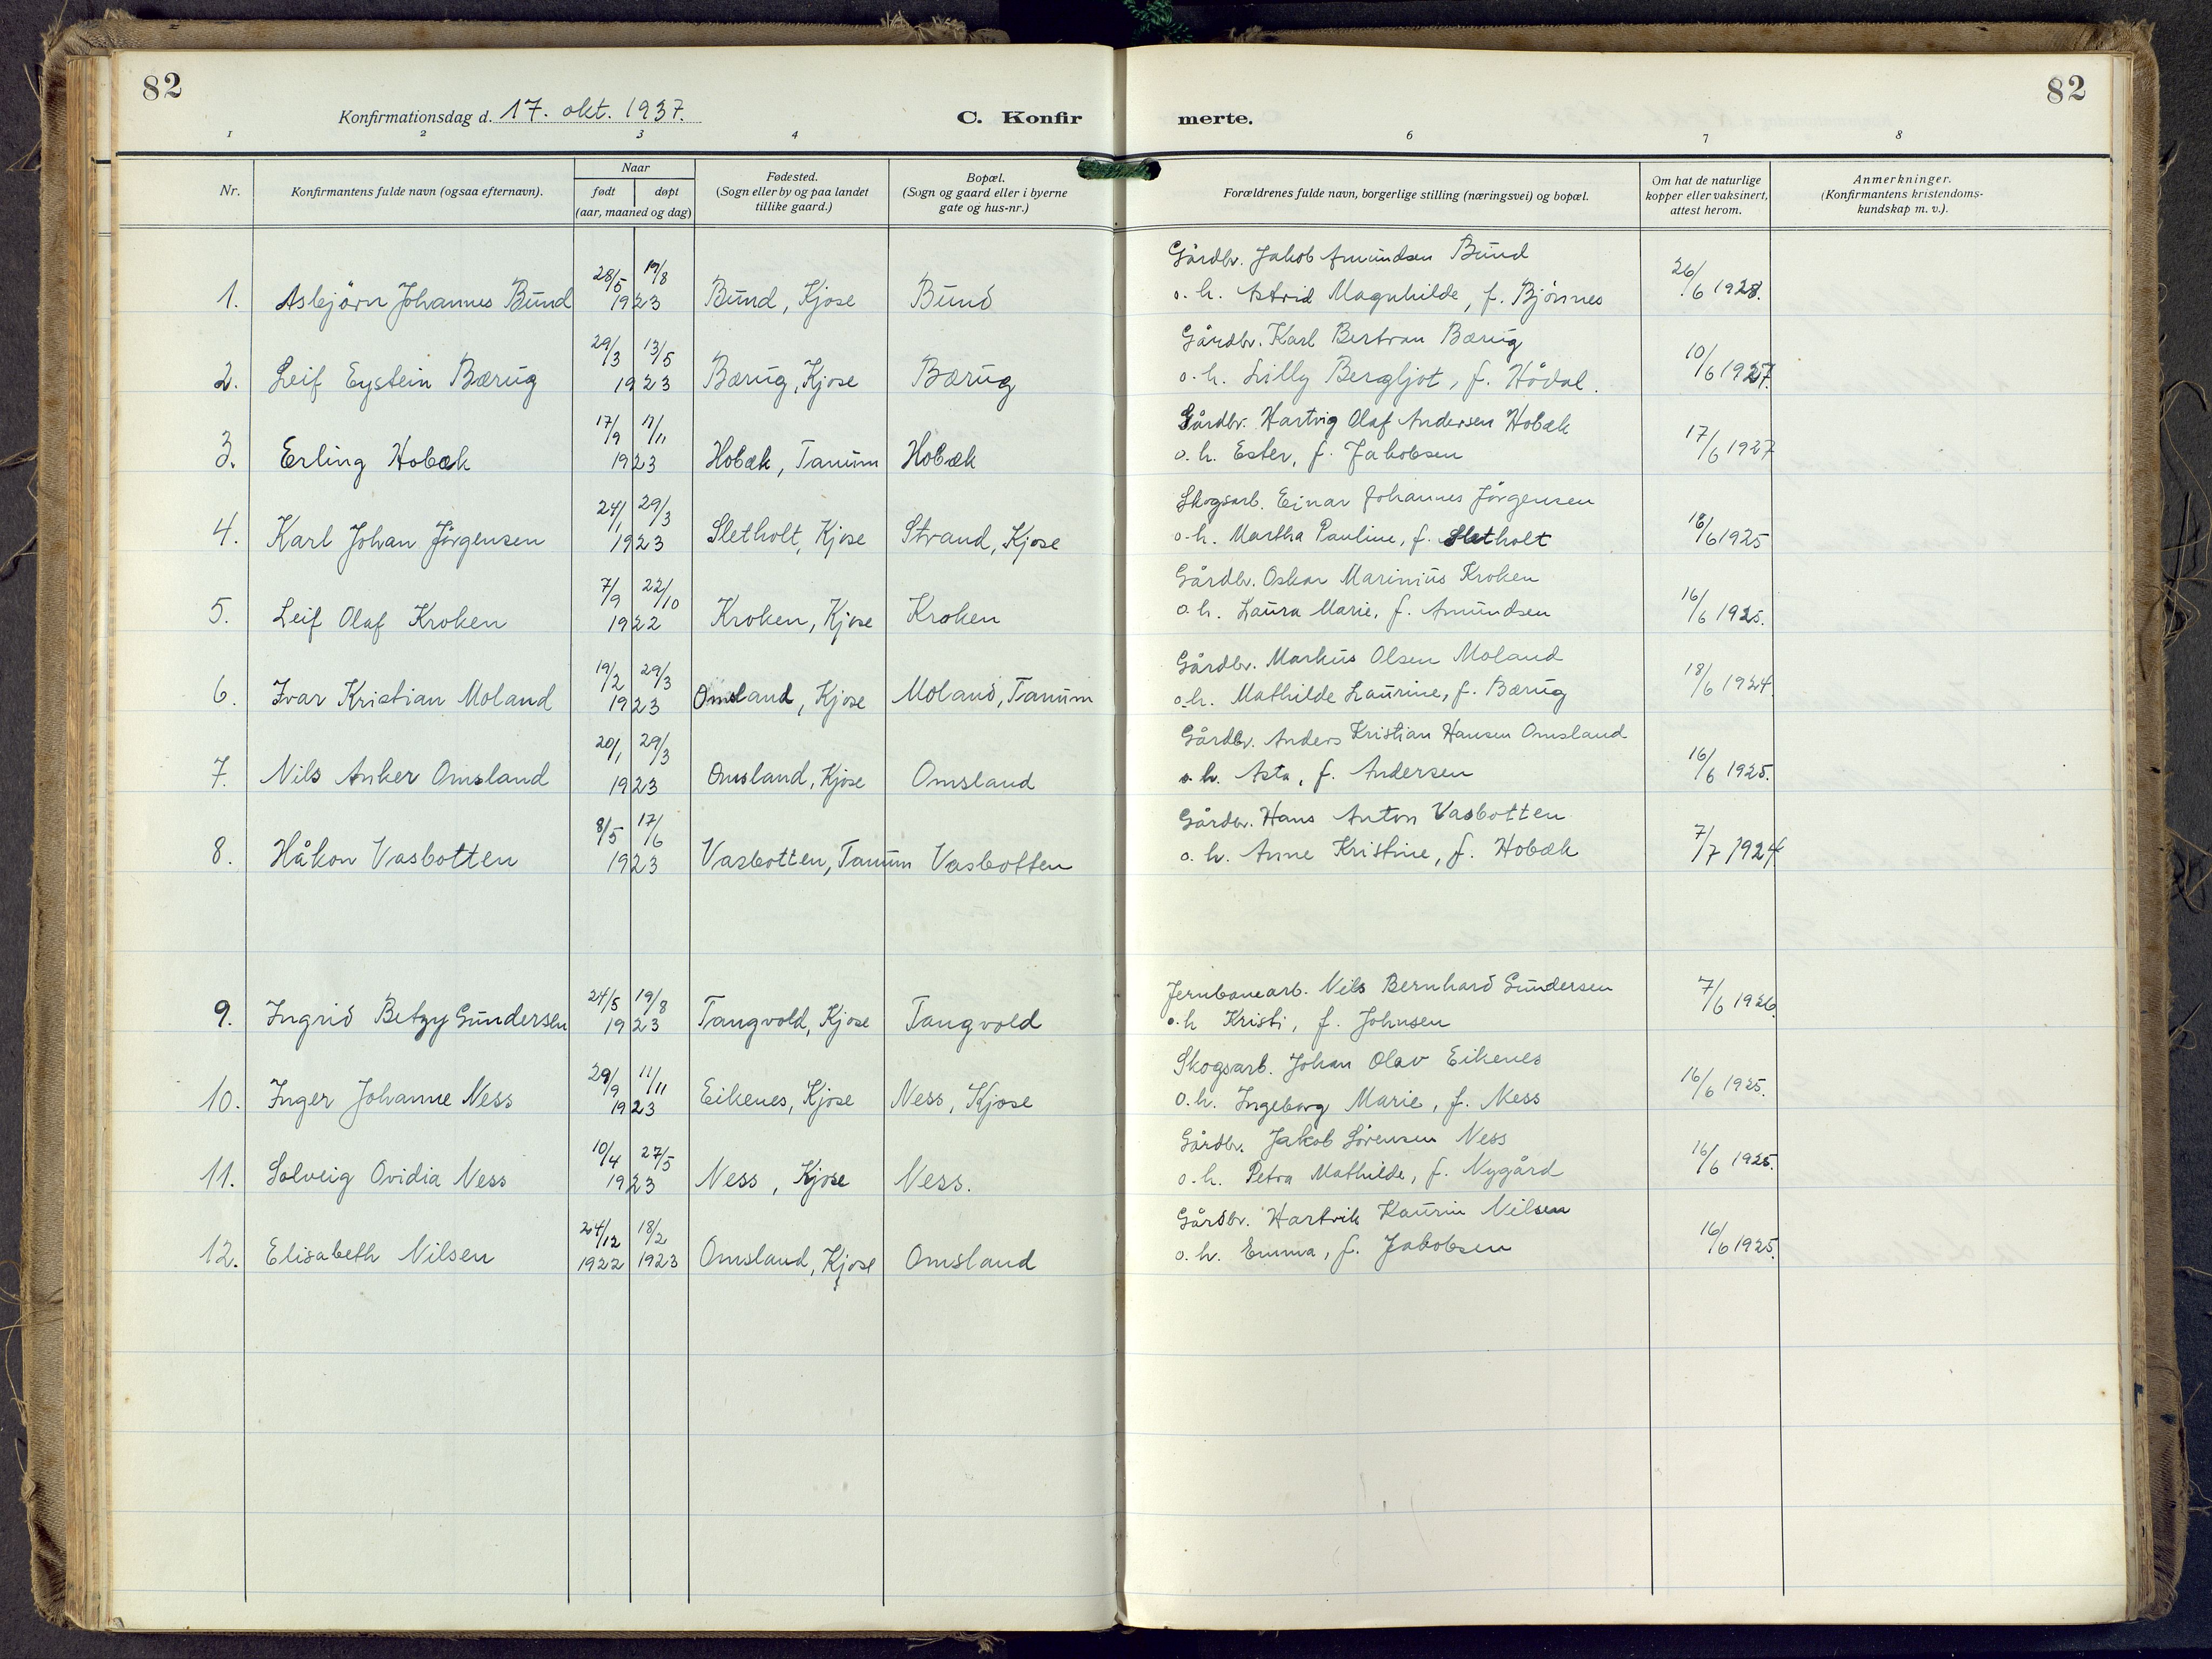 82
Konfirmationsdag d. 17. okt. 1937.
C. Konfirmerte.
82
1 2 3 4 6 7 8
Nr.
Konfirmantens fulde navn (ogsaa efternavn).
Naar
født
døpt
(aar, maaned og dag)
Fødested.
(Sogn eller by og paa landet
tillike gaard.)
Bopæl.
(Sogn og gaard eller i byerne
gate og hus-nr.)
Forældrenes fulde navn, borgerlige stilling (næringsvei) og bopæl.
Om hat de naturlige
kopper eller vaksinert,
attest herom.
Anmerkninger.
(Konfirmantens kristendoms-
kundskap m. v.).
28/5 19/8 Gårdbr. Jakob Amundsen Bund
1. Asbjörn Johannes Bund 1923 Bund, Kjose Bund o. h. Astrid Magnhilde, f. Bjönnes 26/6 1928.
29/3 13/5 Gårdbr. Karl Bertran Bærug
2. Leif Eystein Bærug 1923 Bærug, Kjose Bærug o. h. Lilly Bergljot, f. Hådal. 10/6 1927.
17/9 11/11 Gårdbr. Hartvig Olaf Andersen Hobæk
3. Erling Hobæk 1923 Hobæk, Tanum Hobæk o. h. Ester, f. Jakobsen 17/6 1927
24/1 29/3 Skogsarb. Einar Johannes Jörgensen
4. Karl Johan Jörgensen 1923 Sletholt, Kjose Strand, Kjose o. h. Martha Pauline, f. Sletholt 16/6 1925
7/9 22/10 Gårdbr. Oskar Marinius Kroken
5. Leif Olaf Kroken 1922 Kroken, Kjose Kroken o. h. Laura Marie, f. Amundsen 16/6 1925.
19/2 29/3 Gårdbr. Markus Olsen Moland
6. Ivar Kristian Moland 1923 Omsland, Kjose Moland, Tanum o. h. Mathilde Laurine, f. Bærug 18/6 1924.
20/1 29/3 Gårdbr. Anders Kristian Hansen Omsland
7. Nils Anker Omsland 1923 Omsland, Kjose Omsland o. h. Asta, f. Andersen 16/6 1925.
8/5 17/6 Gårdbr. Hans Anton Vasbotten
8. Håkon Vasbotten 1923 Vasbotten, Tanum Vasbotten o. h. Anne Kristine, f. Hobæk 7/7 1924
24/5 19/8 Jernbanearb. Nils Bernhard Gundersen
9. Ingrid Betzy Gundersen 1923 Tangvold, Kjose Tangvold o. h Kristi, f. Johnsen 7/6 1926.
29/9 11/11 Skogsarb. Johan Olav Eikenes
10. Inger Johanne Ness 1923 Eikenes, Kjose Ness, Kjose o. h. Ingeborg Marie, f. Ness 16/6 1925.
10/4 27/5 Gårdbr. Jakob Sörensen Ness
11. Solveig Ovidia Ness 1923 Ness, Kjose Ness. o. h. Petra Mathilde, f. Nygård 16/6 1925.
24/12 18/2 Gårdbr. Hartvik Kaurin Nilsen
12. Elisabeth Nilsen 1922 1923 Omsland, Kjose Omsland o. h. Emma, f. Jakobsen 16/6 1925.